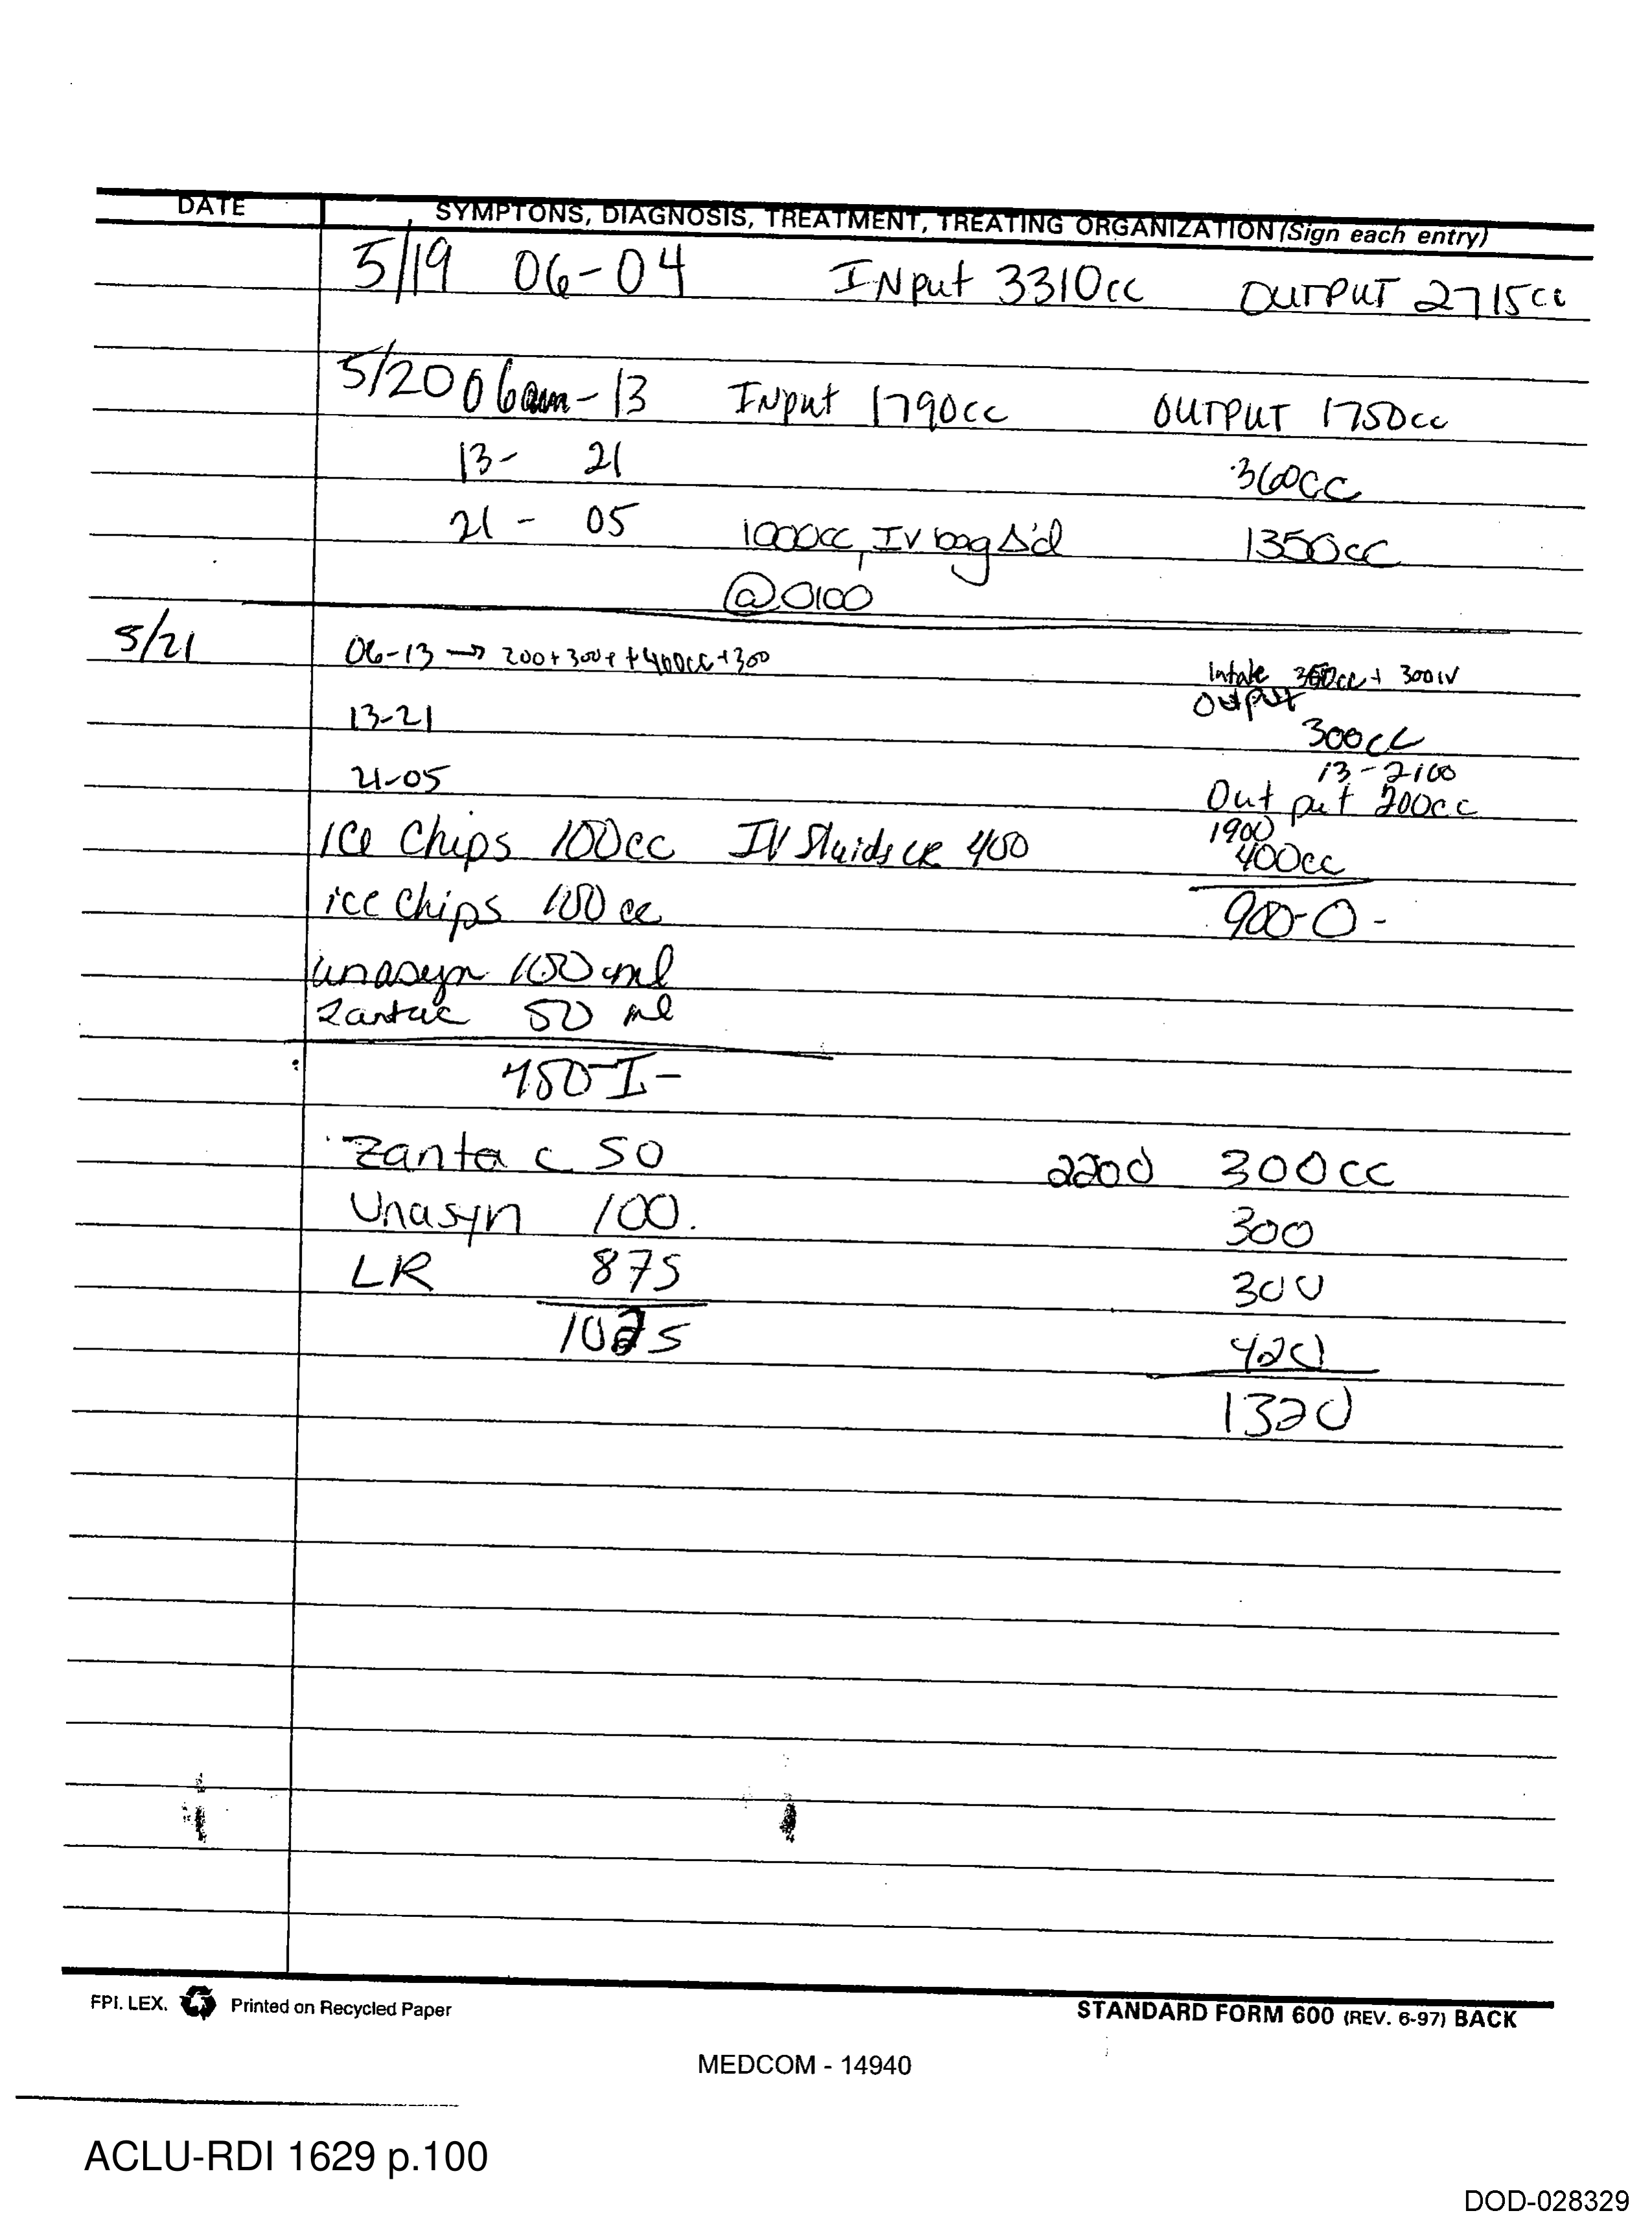 DATE SYMPTONS, DIAGNOSIS, TREATMENT, TREATING ORGANIZATION (Sign each entry)
5/19 06-04 INput 3310cc OUTPUT 2715cc
5/20 06am-13 INput 1790cc OUTPUT 1750cc
13- 21 360cc
21 - 05 1000cc, IV bag Δ'd 1350cc
@ 0100
5/21 06-13 → 200+300+ +400cc+300
Intake 360cc + 300 IV
Output
13-21 300cc
13-2100
21-05 Out put 200cc
1900
ice Chips 100cc IV fluids LR 400 400cc
ice chips 100 cc 900-O-
unasyn 100 ml
Zantac 50 ml
750-I-
Zantac 50 2200 300cc
Unasyn 100. 300
LR 875 300
1025 420
1320
FPI. LEX. Printed on Recycled Paper STANDARD FORM 600 (REV. 6-97) BACK
MEDCOM - 14940
ACLU-RDI 1629 p.100
DOD-028329